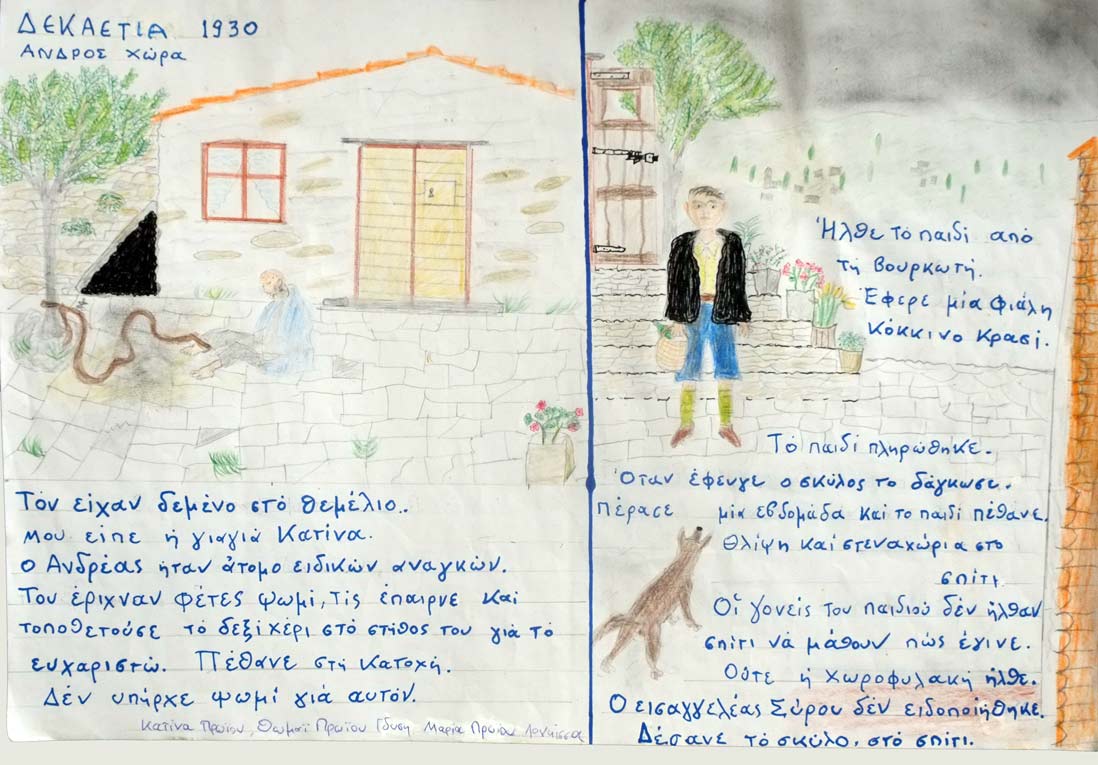 ΔΕΚΑΕΤΙΑ 1930
ΑΝΔΡΟΣ Χώρα
Τόν είχαν δεμένο στό θεμέλιο..
μου είπε ή γιαγιά Κατίνα.
ο Ανδρέας ήταν άτομο ειδικών αναγκών.
Του έριχναν φέτες ψωμί, τίς έπαιρνε και
τοποθετούσε τό δεξί χέρι στό στήθος του γιά τό
ευχαριστώ. Πέθανε στή Κατοχή.
Δέν υπήρχε ψωμί γιά αυτόν.
Κατίνα Πρωίου, Θωμαή Πρωίου Γδύση Μαρία Πρωίου
Ήλθε τό παιδί από
τή Βουρκωτή.
Έφερε μία φιάλη
κόκκινο κρασί.
Τό παιδί πληρώθηκε.
Όταν έφευγε ο σκύλος το δάγκωσε.
Πέρασε μία εβδομάδα καί το παιδί πέθανε.
Θλίψη καί στεναχώρια στο
σπίτι.
Οἱ γονείς του παιδιού δέν ήλθαν
σπίτι νά μάθουν πώς έγινε.
Ούτε ή χωροφυλακή ήλθε.
Ο εισαγγελέας Σύρου δέν ειδοποιήθηκε.
Δέσανε τό σκύλο, στό σπίτι.